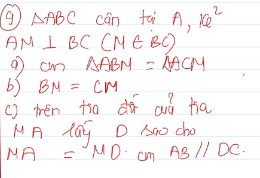 ⑨ ΔABC cân tại A, kẻ
AM ⊥ BC (M ∈ BC)
a) cm ΔABM = ΔACM
b) BM = CM
c) trên tia đối của tia
MA lấy D sao cho
MA = MD. cm AB // DC.